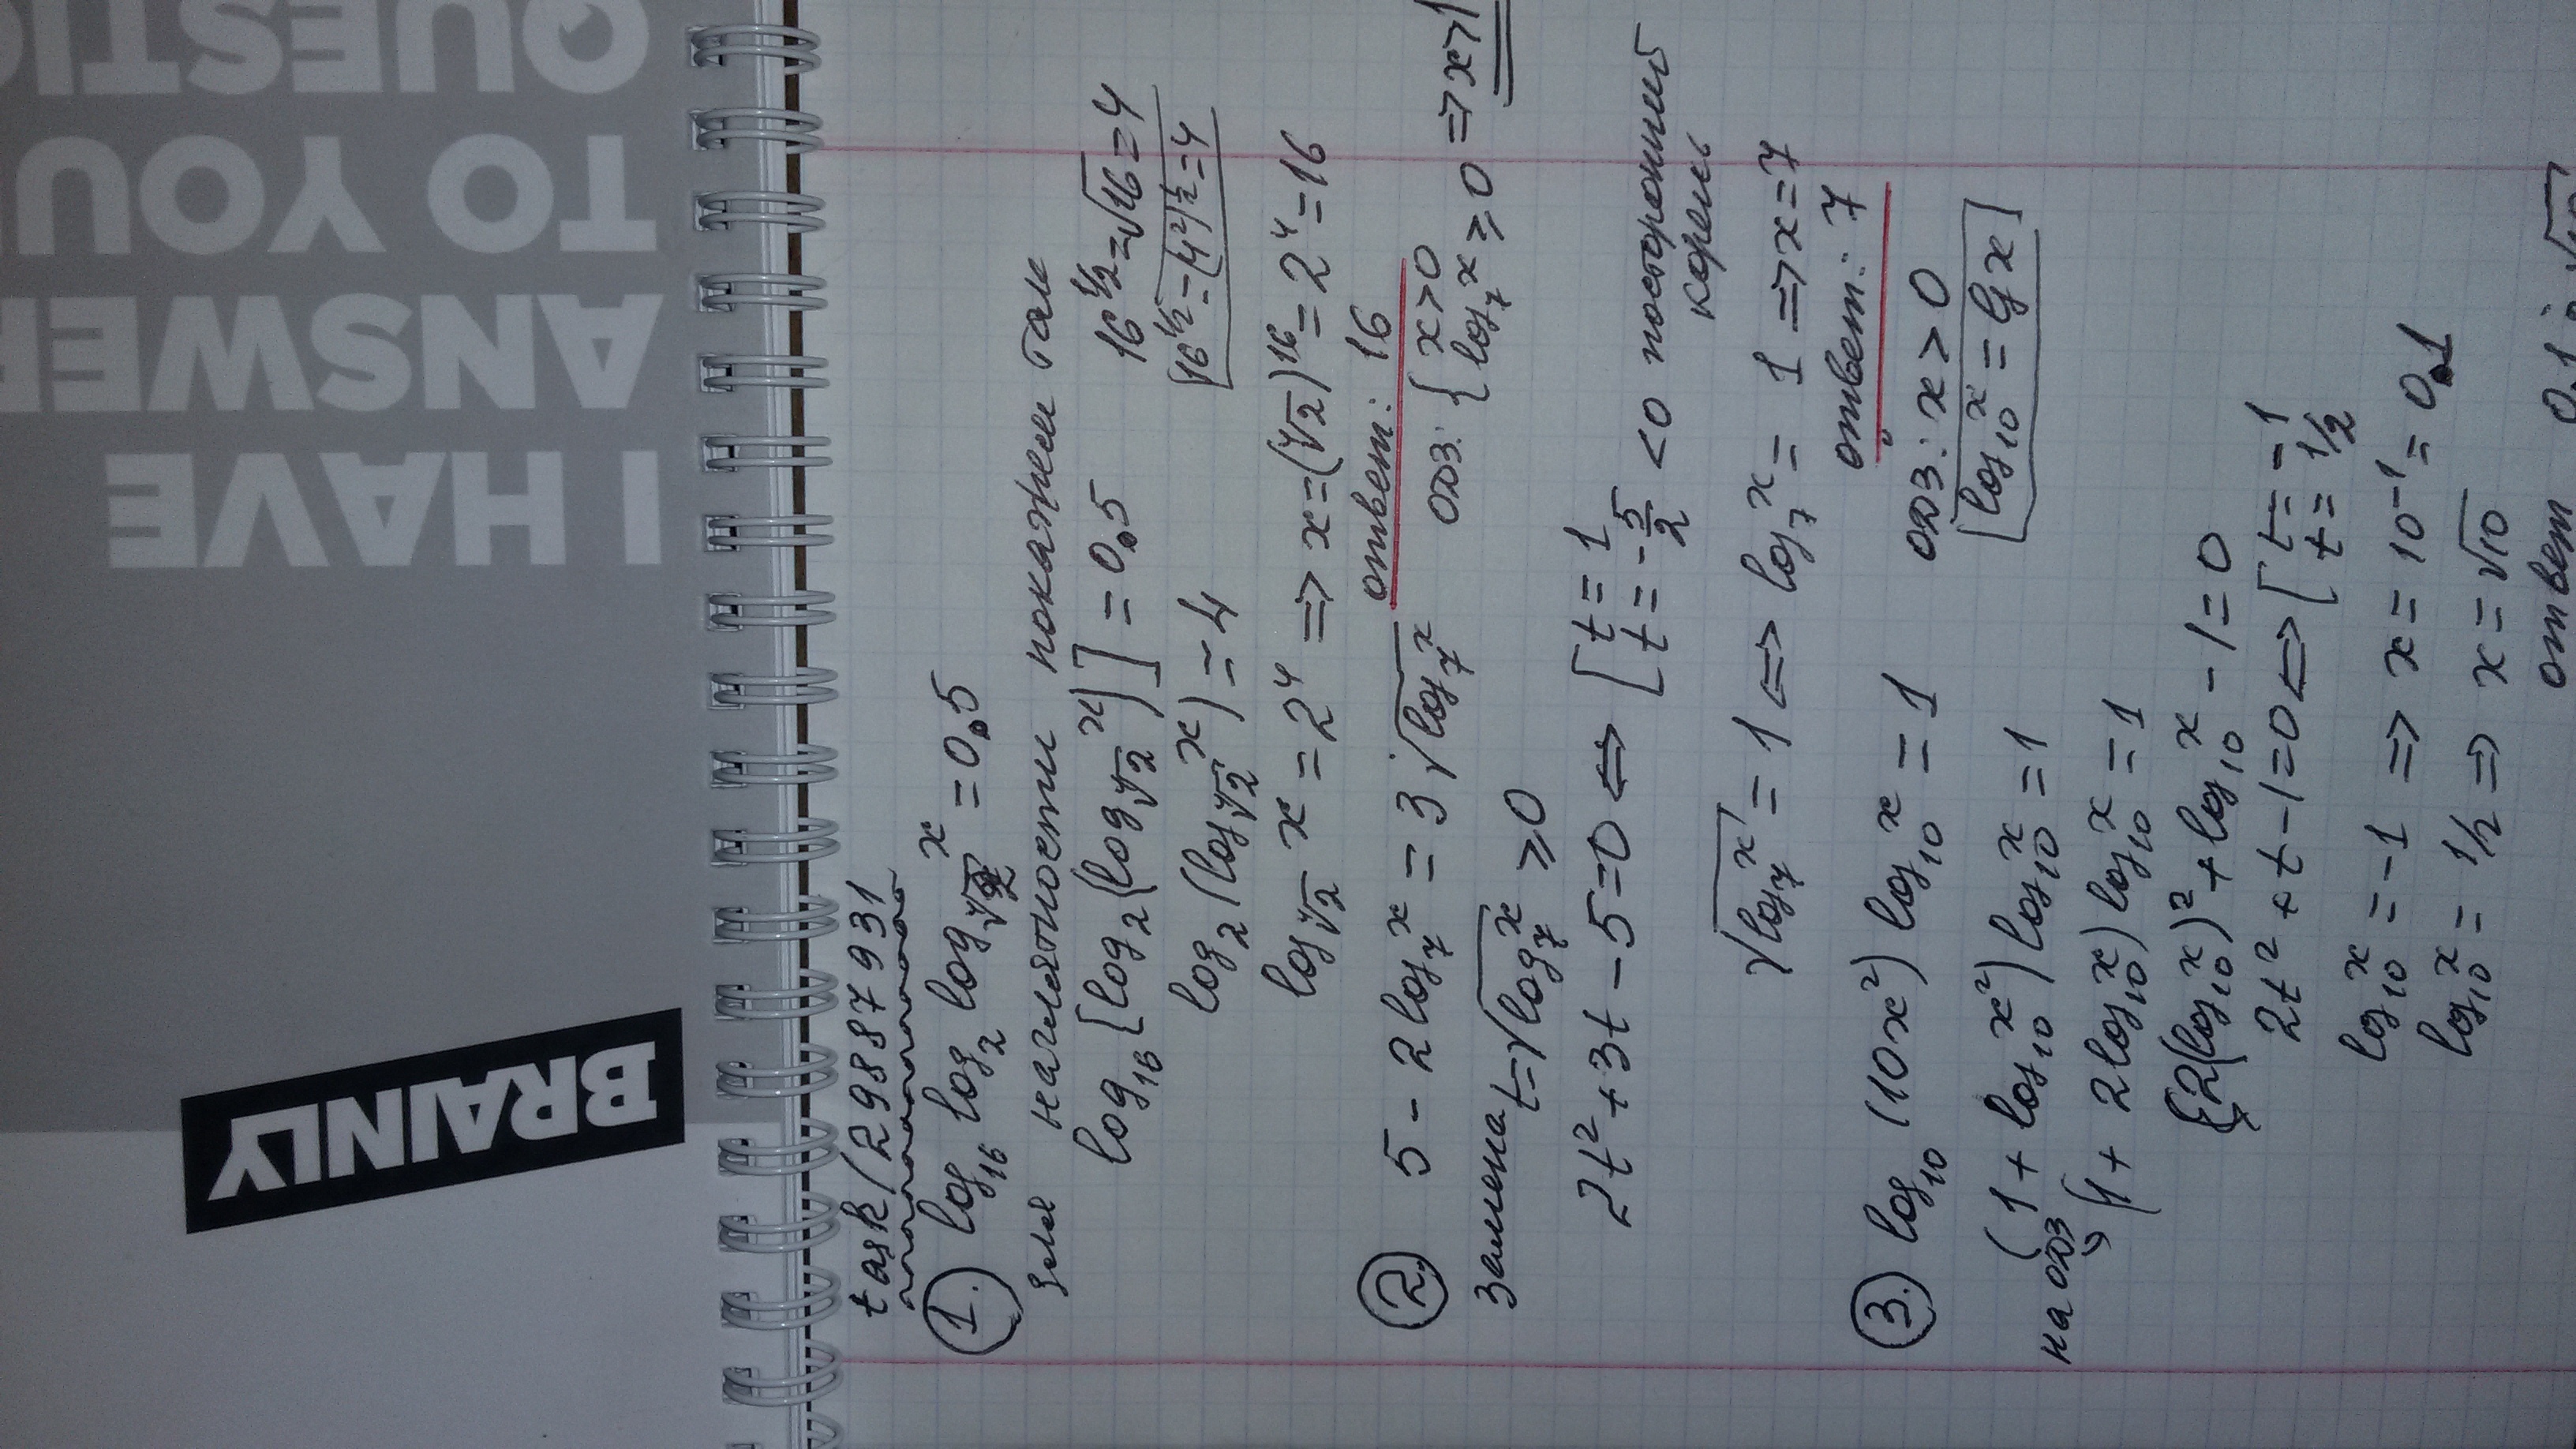 I HAVE
ANSWER
TO YOU
QUESTIO
BRAINLY
task/29887931
1. log₁₆ log₂ log_∜2 x = 0,5
для наглядности покажем так
log₁₆[log₂(log_∜2 x)] = 0,5 16^½ = √16 = 4
log₂(log_∜2 x) = 4 16^½ = (4²)^½ = 4
log_∜2 x = 2⁴ => x = (∜2)¹⁶ = 2⁴ = 16
ответ: 16
2) 5 - 2log₇x = 3√log₇x ОДЗ: { x > 0 log₇x ≥ 0 => x > 1
замена t = √log₇x ≥ 0
2t² + 3t - 5 = 0 <=> [ t = 1
t = -5/2 < 0 посторонний корень
√log₇x = 1 <=> log₇x = 1 => x = 7
ответ: 7
3. log₁₀(10x²) log₁₀x = 1 ОДЗ: x > 0
[log₁₀x = lg x]
(1 + log₁₀x²) log₁₀x = 1
на ОДЗ (1 + 2log₁₀x) log₁₀x = 1
2(log₁₀x)² + log₁₀x - 1 = 0
2t² + t - 1 = 0 <=> [ t = -1
t = 1/2
log₁₀x = -1 => x = 10⁻¹ = 0,1
log₁₀x = 1/2 => x = √10
ответ 0,1; √10